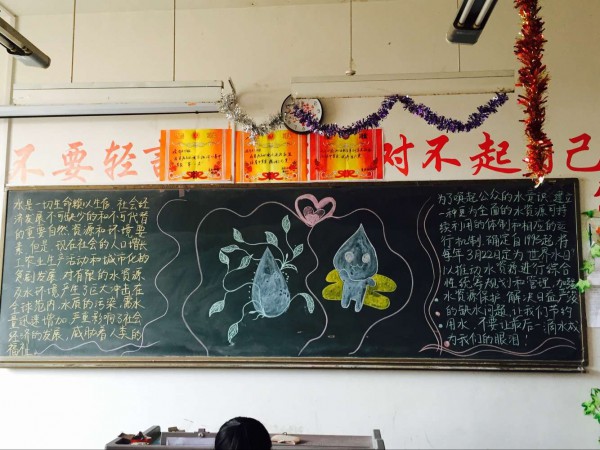 不要轻言
对不起自己
水是一切生命赖以生存,社会经
济发展不可缺少的和不可代替
的重要自然资源和环境要
素.但是,现在社会的人口增长,
工农业生产活动和城市化的
急剧发展,对有限的水资源
及水环境产生了巨大冲击在
全球范围内,水质的污染,需水
量迅速增加,严重影响了社会
经济的发展,威胁着人类的
福祉。
为了唤起公众的水意识,建立
一种更为全面的水资源可持
续利用的体制和相应的运
行机制,确定自1993起将
每年3月22日定为世界水日
以推动水资源进行综合
性统筹规划和管理,加强
水资源保护,解决日益严峻
的缺水问题,让我们节约
用水,不要让最后一滴水成
为我们的眼泪!